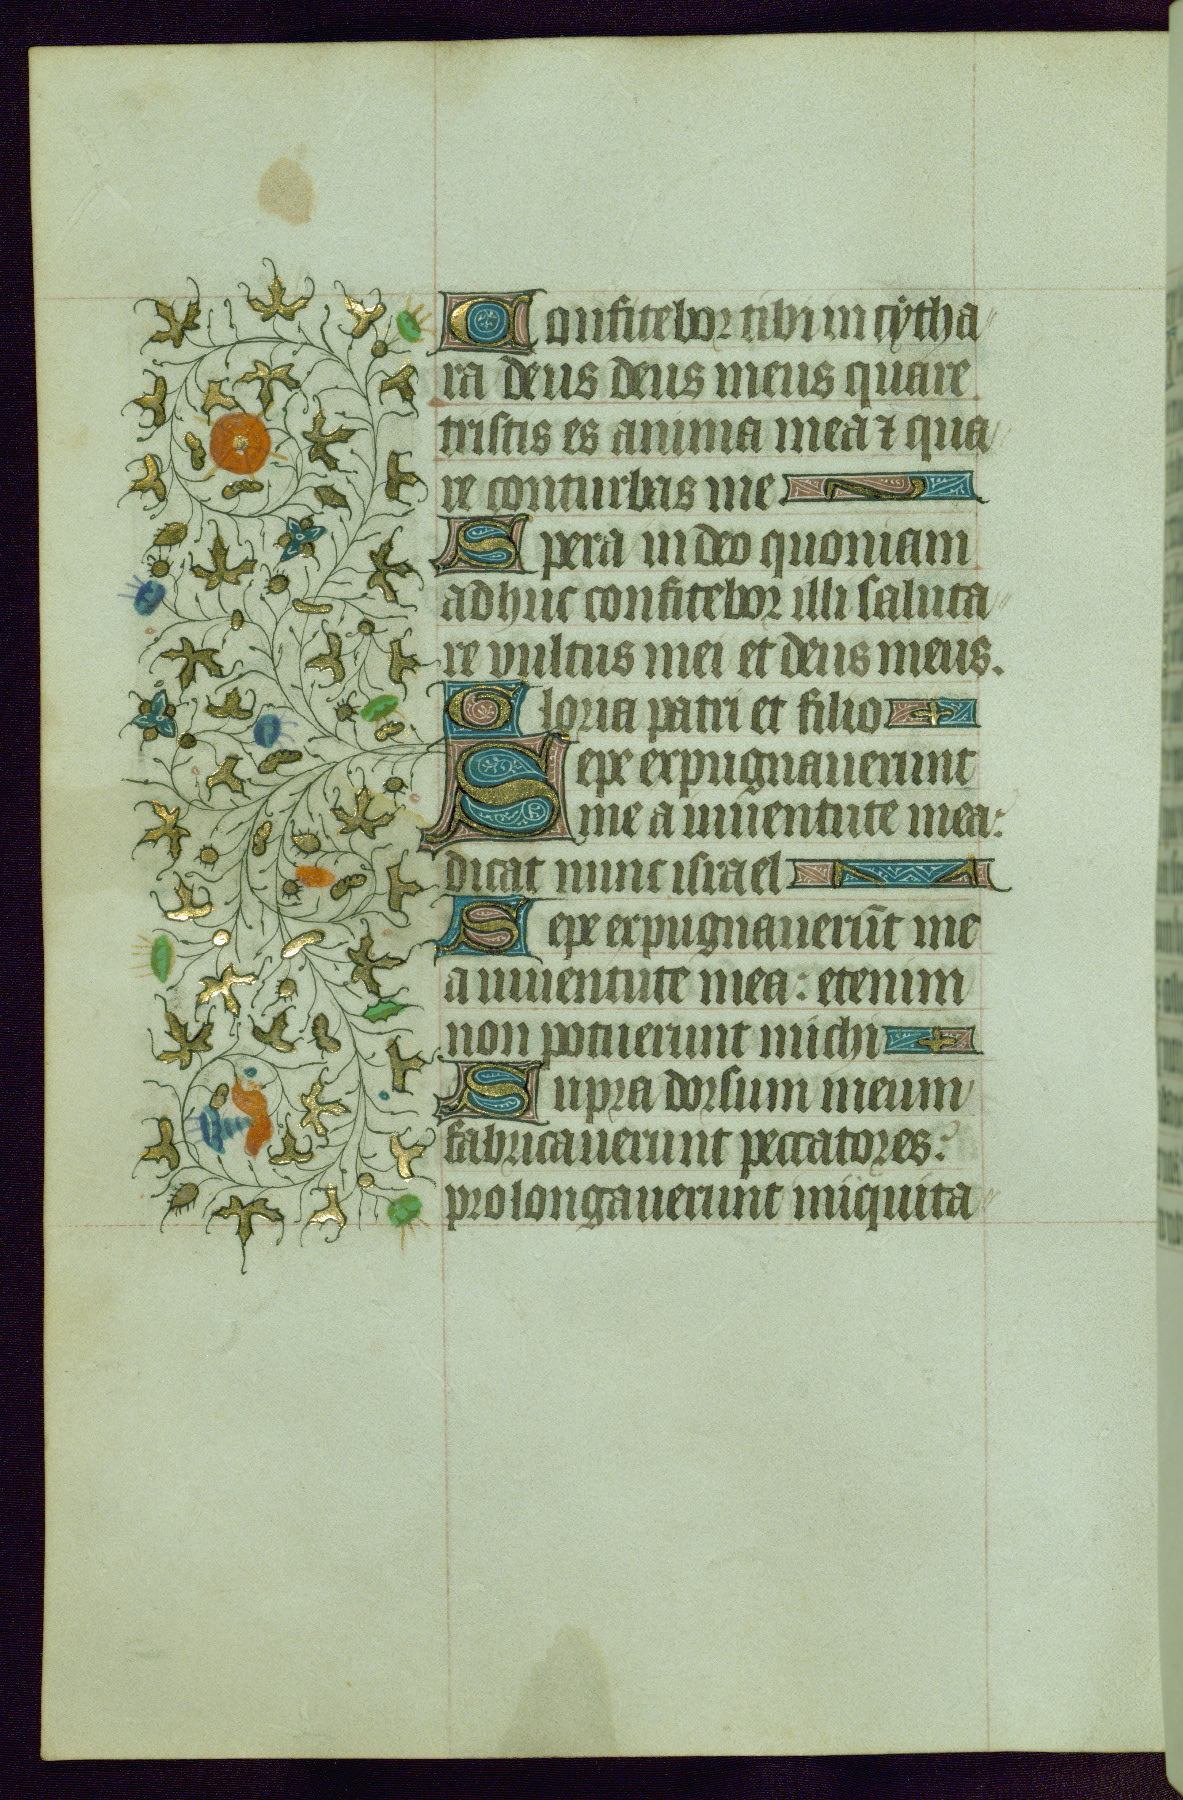 Confitebor tibi in cytha
ra deus deus meus quare
tristis es anima mea ⁊ qua
re conturbas me
Spera in deo quoniam
adhuc confitebor illi saluta
re vultus mei et deus meus.
Gloria patri et filio
Sepe expugnauerunt
me a iuuentute mea:
dicat nunc israel
Sepe expugnauerūt me
a iuuentute mea: etenim
non potuerunt michi
Supra dorsum meum
fabricauerunt peccatores:
prolongauerunt iniquita